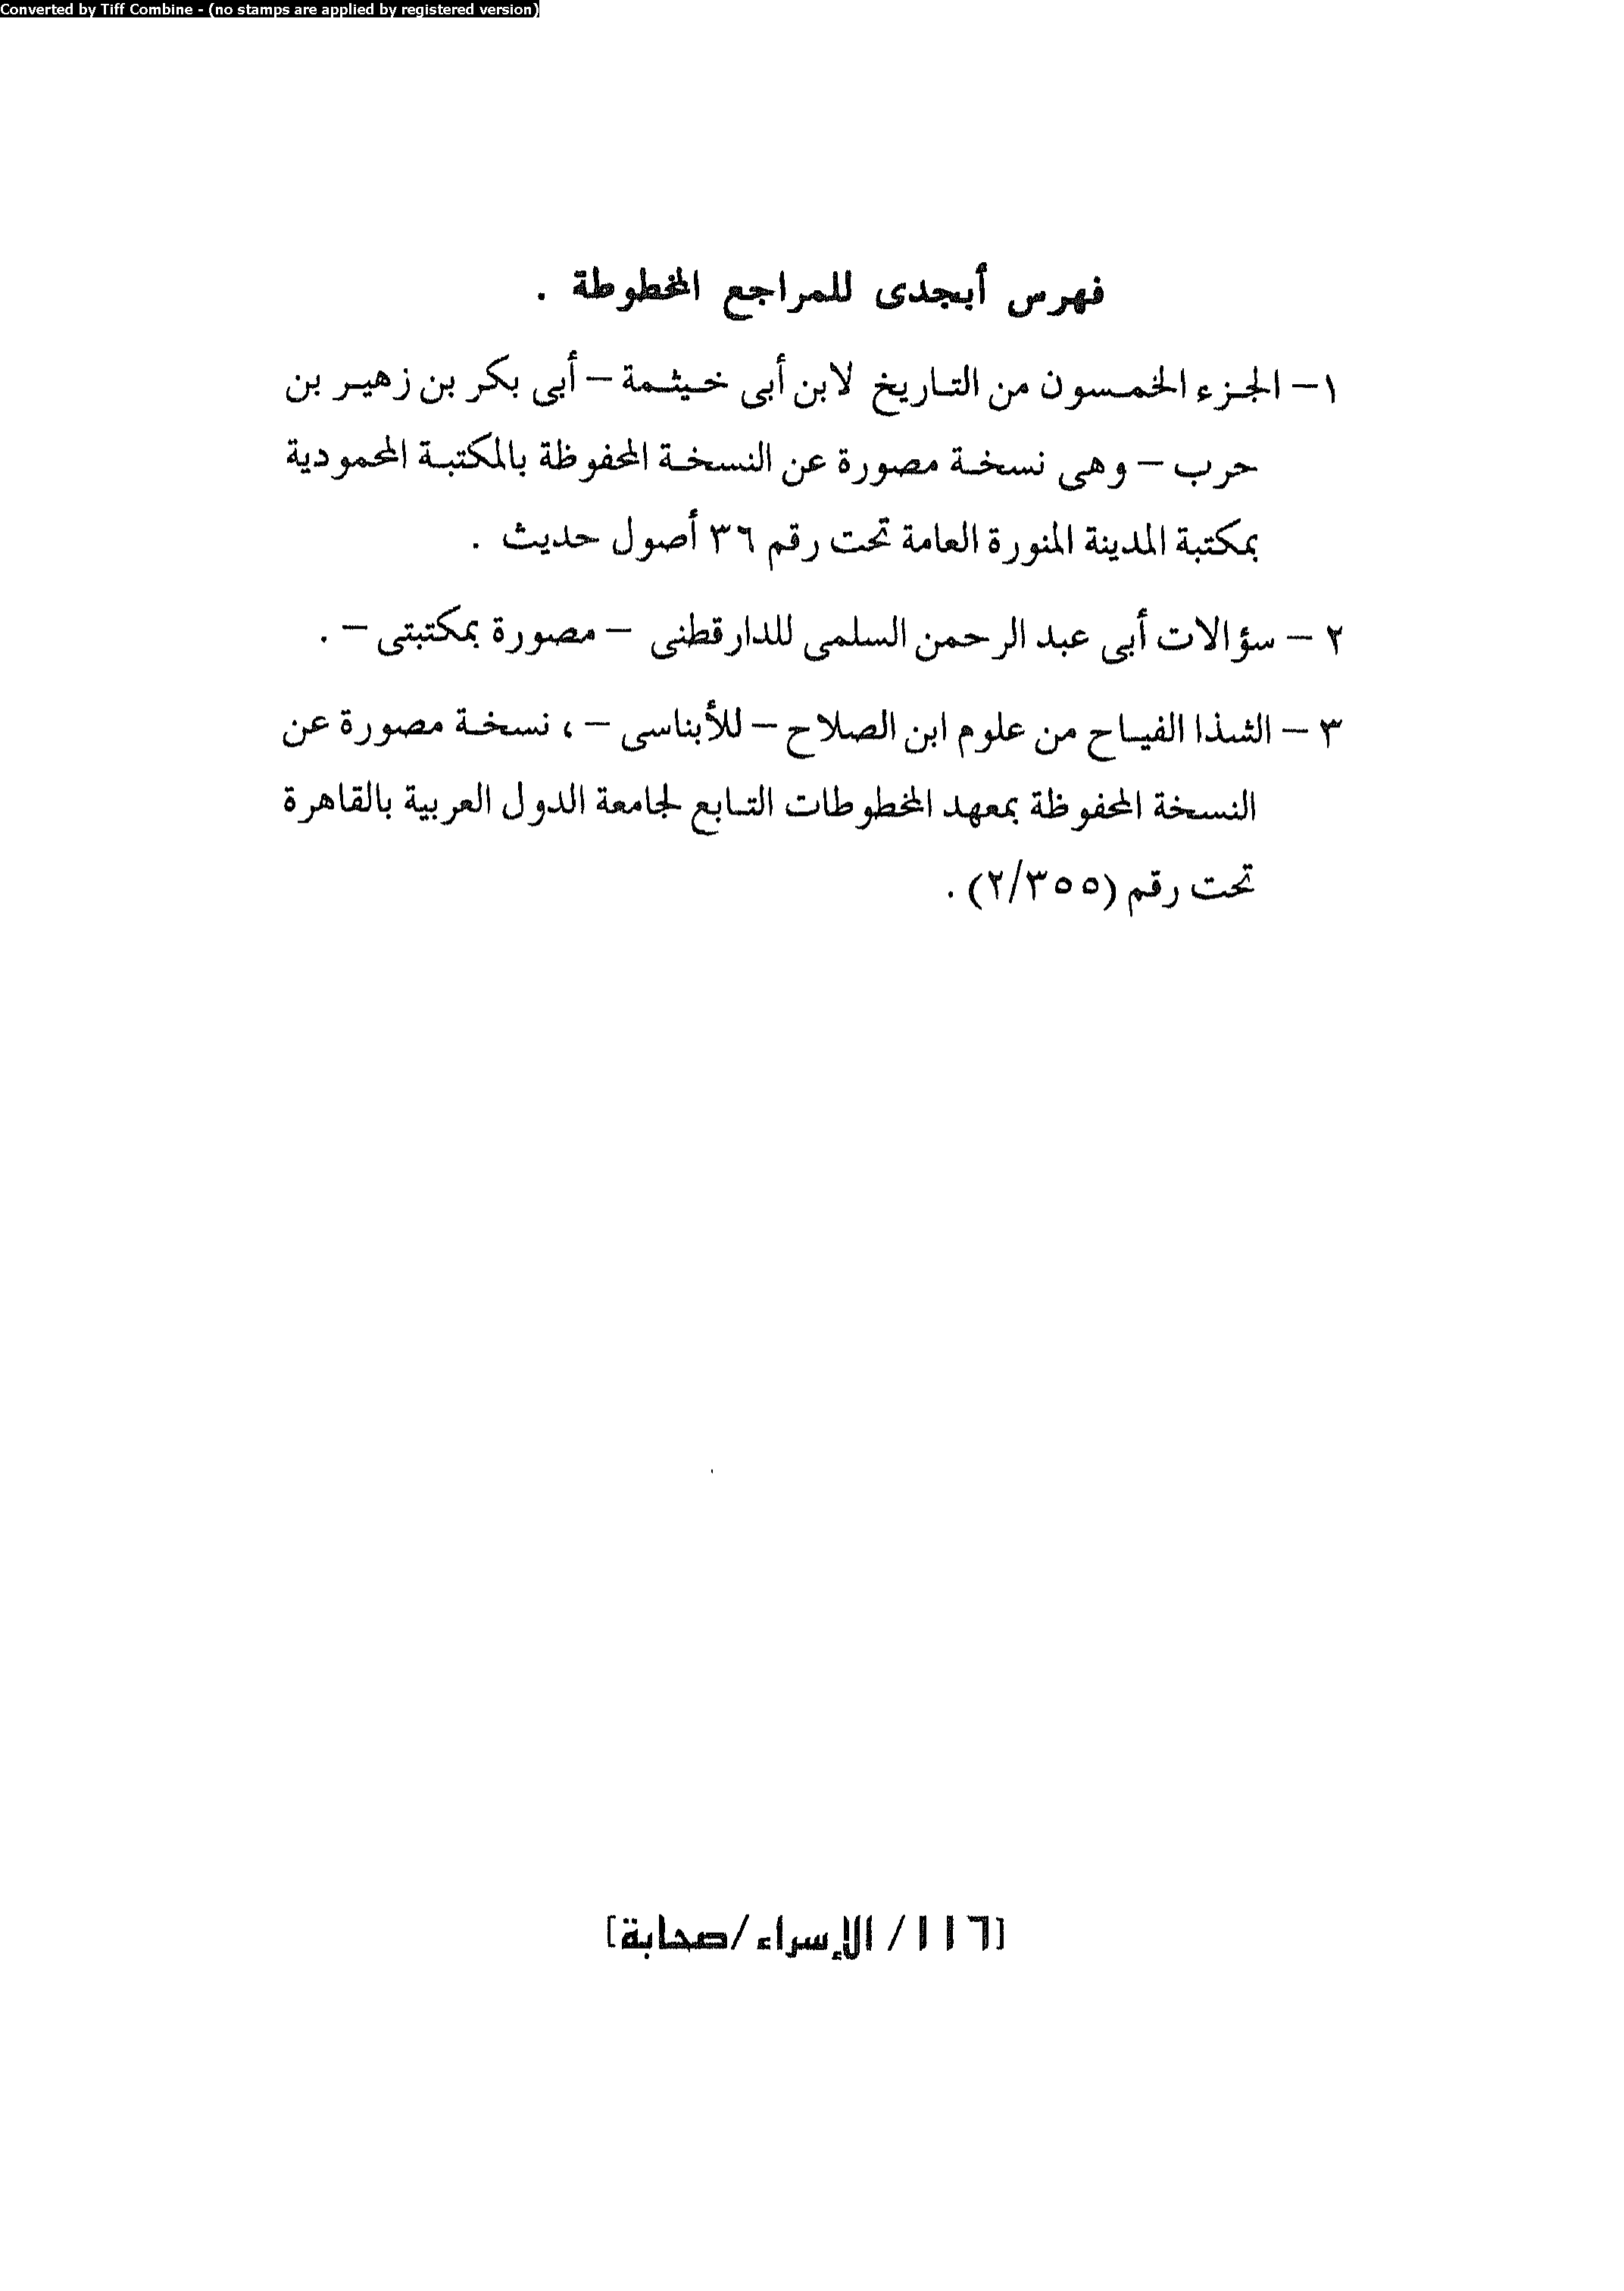 Converted by Tiff Combine - (no stamps are applied by registered version)
فهرس أبجدى للمراجع المخطوطة .
١- الجزء الخمسون من التاريخ لابن أبى خيثمة – أبى بكر بن زهير بن
حرب – وهى نسخة مصورة عن النسخة المحفوظة بالمكتبة المحمودية
بمكتبة المدينة المنورة العامة تحت رقم ٣٦ أصول حديث .
٢ – سؤالات أبى عبد الرحمن السلمى للدارقطنى – مصورة بمكتبتى – .
٣ – الشذا الفياح من علوم ابن الصلاح – للأبناسى – ، نسخة مصورة عن
النسخة المحفوظة بمعهد المخطوطات التابع لجامعة الدول العربية بالقاهرة
تحت رقم (٢/٣٥٥) .
[١١٦/ الإسراء/صحابة]